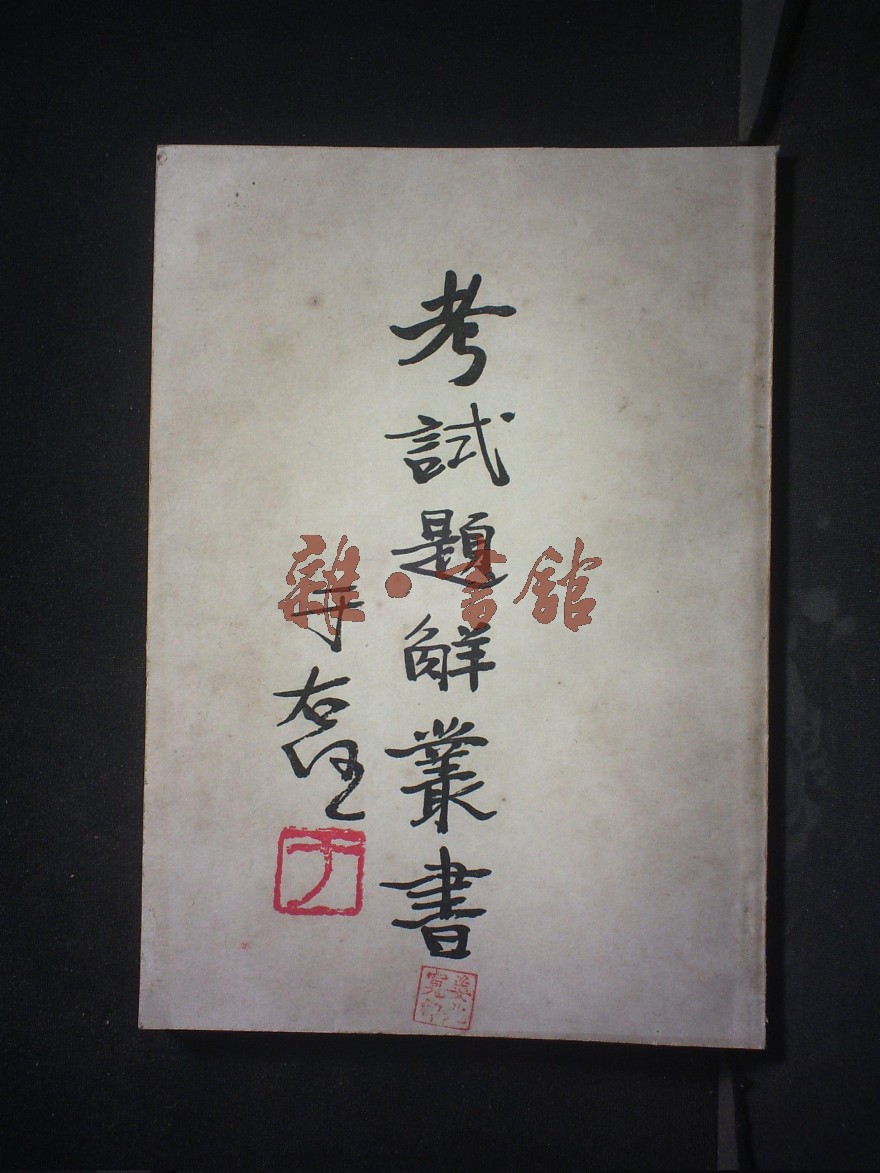 考試題解叢書
于右任
于
雜·書館